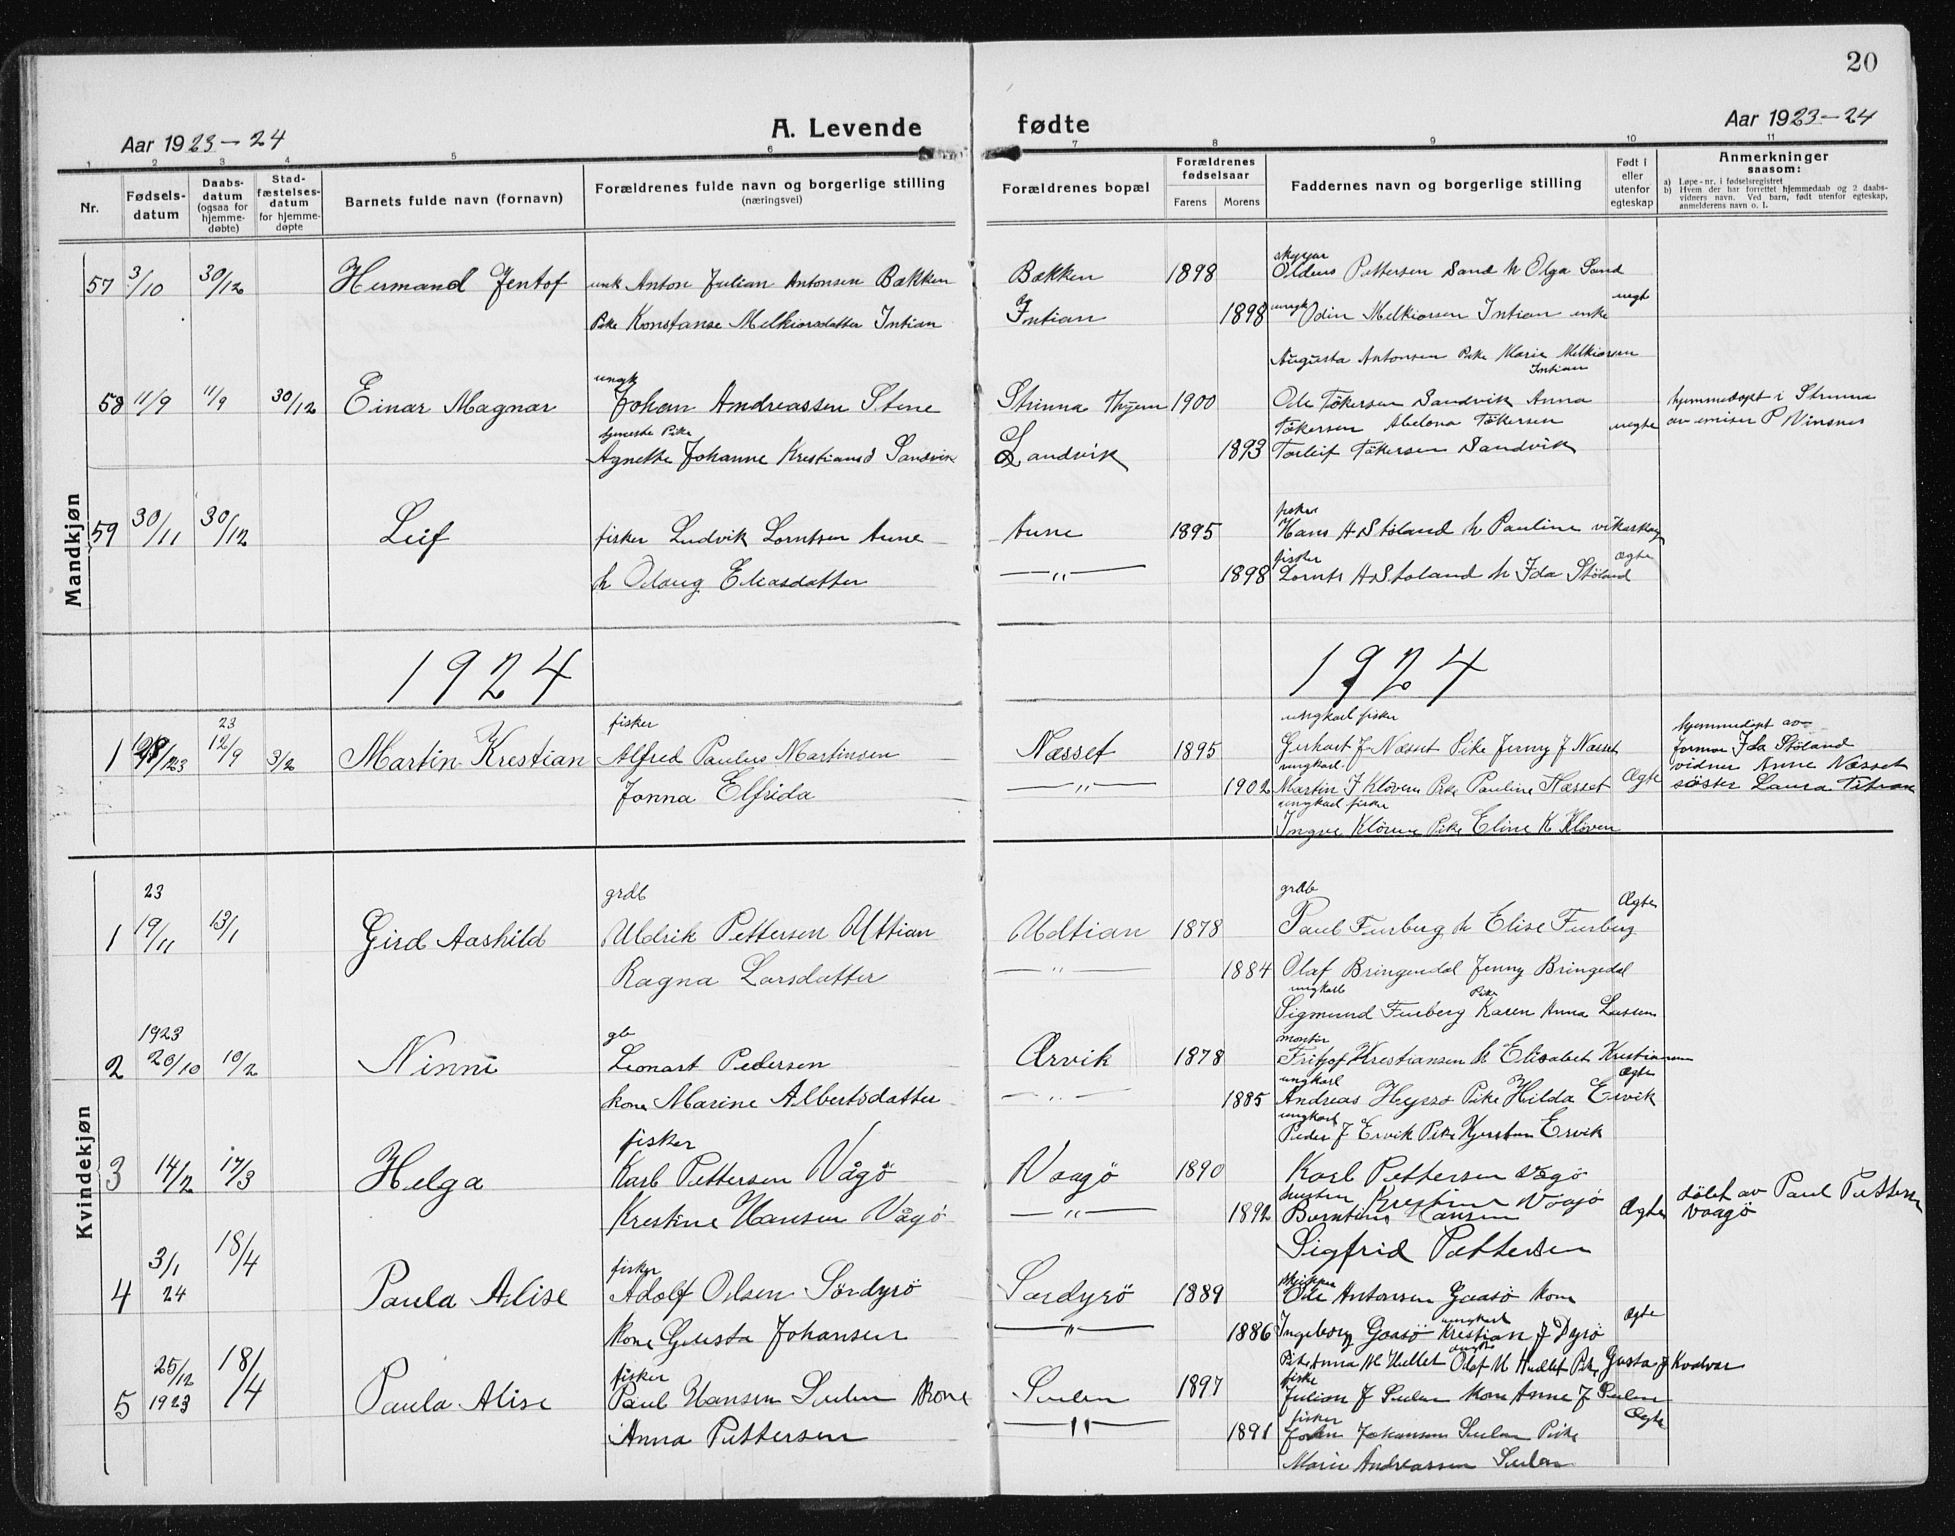 20
A. Levende fødte
Aar 1923-24
Aar 1923-24
1 2 3 4 5 6 7 8 9 10 11
Nr.
Fødsels-
datum
Daabs-
datum
(ogsaa for
hjemme-
døbte)
Stad-
fæstelses-
datum
for hjemme-
døpte
Barnets fulde navn (fornavn)
Forældrenes fulde navn og borgerlige stilling
(næringsvei)
Forældrenes bopæl
Forældrenes
fødselsaar
Farens Morens
Faddernes navn og borgerlige stilling
Født i
eller
utenfor
egteskap
Anmerkninger
saasom:
a) Løpe-nr. i fødselsregistret
b) Hvem der har forrettet hjemmedaab og 2 daabs-
vidners navn. Ved barn, født utenfor egteskap,
anmelderens navn o. l.
Mandkjøn
57 3/10 30/12 Hermand Jentof unk Anton Julian Antonsen Bakken Bakken 1898 Petersen Sand h Olga Sand
Pike Konstanse Melkiorsdatter Intian Intian 1898 ungk Odin Melkiorsen Intian enke uegt
Augusta Antonsen Pike Marie Melkiorsen
Intian
58 11/9 11/9 30/12 Einar Magnar ungk Johan Andreassen Stene Strinna 1900 Ole Tøkersen Sandvik Anna hjemmedøpt i Strinna
tjeneste Pike Tøkersen Abelona Tøkersen uegte av P Vinsnes
Agnette Johanne Krestiansd Sandvik Sandvik 1893 Torleif Tøkersen Sandvik
59 30/11 30/12 Leif fisker Ludvik Lorntsen Aune Aune 1895 Hans H Støland h Pauline
h Odaug Eliasdatter —"— 1898 fisker Lornts H Støland h Ida Støland Ægte
1924 1924
fisker ungkarl fisker
1 23 12/9 3/2 Martin Krestian Alfred Paulus Martinsen Næsset 1895 Gerhart J Næsset Pike Jenny J Næsset hjemmedøpt av
Jonna Elfrida —"— 1902 ungkarl Martin J Kløven Pike Pauline Næsset Ægte Ida Støland
vidner Anne Næsset
søster Laura Titran
ungkarl fisker
Ingve Kløven Pike Eline K Kløven
Kvindekjøn
23 grdb grdb
1 19/11 13/1 Gird Aashild Uldrik Pettersen Uttian Udtian 1878 Paul Furberg h Elise Furberg Ægte
Ragna Larsdatter —"— 1884 Olaf Bringedal Jenny Bringedal
ungkarl Pike
Sigmund Furberg Karen Anna Larsen
1923 gb
2 20/10 10/2 Ninni Leonart Pedersen Ærvik 1878 Fritjof Krestiansen h Elisabet Krestiansen
kone Marine Albertsdatter —"— 1885 ungkarl Andreas Pike Hilda Ervik Ægte
ungkarl
Peder J Ervik Pike Kjerstine Ervik
fisker
3 14/2 17/3 Helga Karl Pettersen Vågö Vaagö 1890 Karl Pettersen Vågö døbt av Paul Pettersen
Krestine Hansen Vågö —"— 1892 Krestine Vaagö Ægte Vaagö
Berntine Hansen
Sigfrid Pettersen
3/1 fisker skipper
4 24 18/4 Paula Alise Adolf Olsen Sördyrö Sördyrö 1889 Ole Antonsen Gaasö Kone
kone Gusta Johansen —"— 1886 Ingeborg Gaasö ungkarl Krestian J Dyrö Ægte
Pike Anna M Hallet Olaf M Hallet Pike Gusta J Kvalvær
25/12 fisker fisker
5 1923 18/4 Paula Alise Paul Hansen Sulen Kone Sulen 1897 Julian J Sulen Kone Anne J Sulen
Anna Pettersen —"— 1891 fisker Johan Johansen Sulen Pike Ægte
Marie Andreassen Sulen